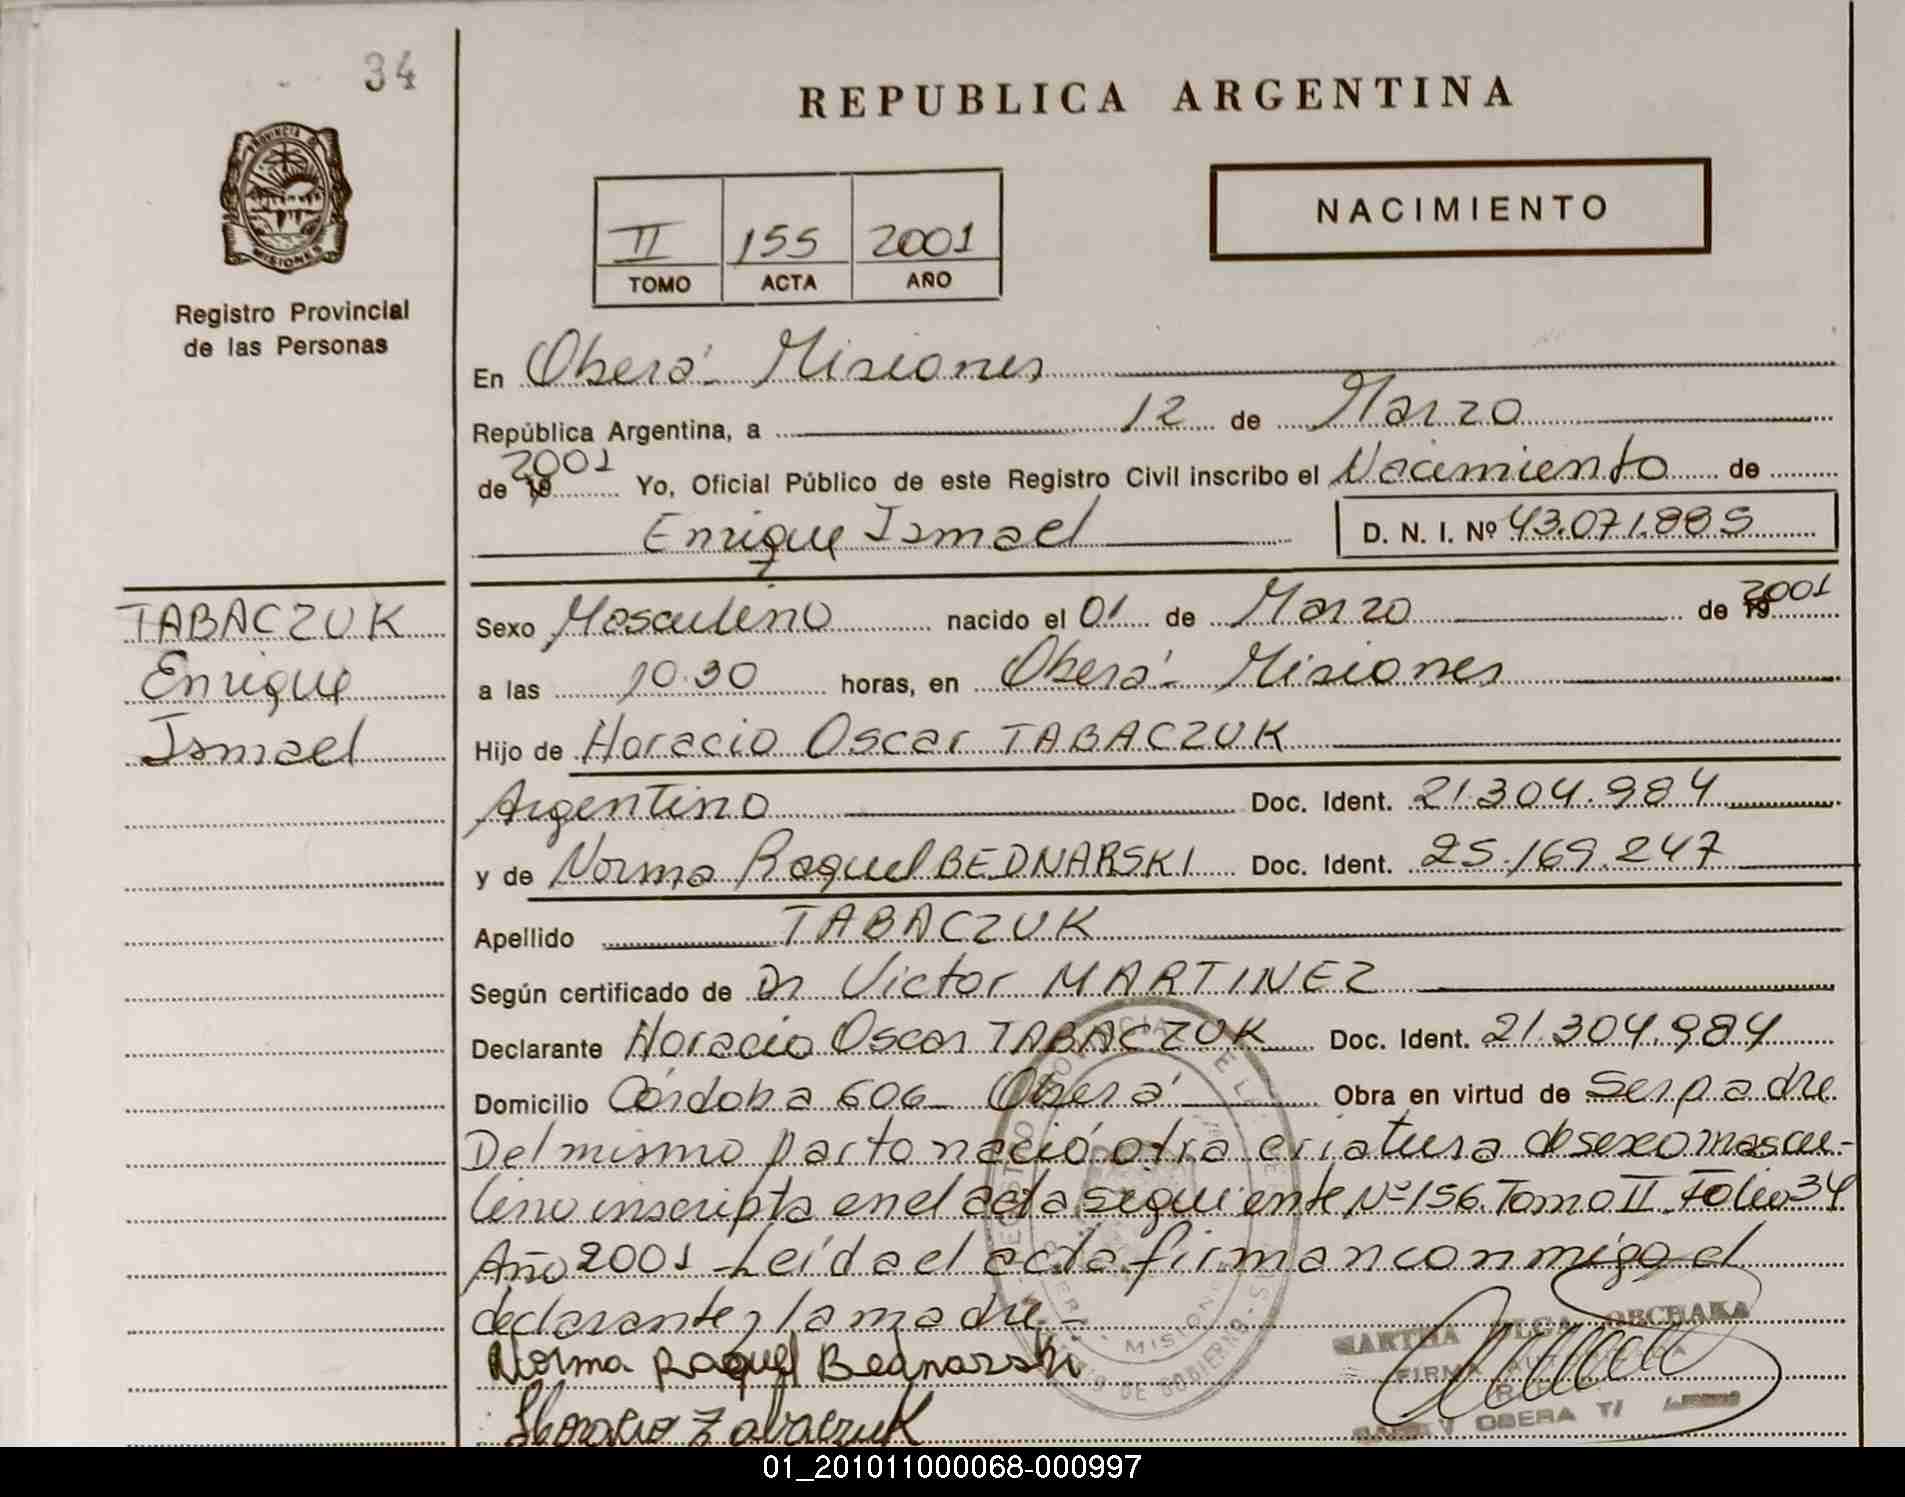 34
REPUBLICA ARGENTINA
PROVINCIA DE MISIONES
Registro Provincial
de las Personas
NACIMIENTO
II 155 2001
TOMO ACTA AÑO
En Oberá - Misiones
República Argentina, a 12 de Marzo
de 19 2001 Yo, Oficial Público de este Registro Civil inscribo el Nacimiento de
Enrique Ismael D. N. I. Nº 43.071.885
TABACZUK
Enrique
Ismael
Sexo Masculino nacido el 01 de Marzo de 19 2001
a las 10.30 horas, en Oberá - Misiones
Hijo de Horacio Oscar TABACZUK
Argentino Doc. Ident. 21.304.984
y de Norma Raquel BEDNARSKI Doc. Ident. 25.169.247
Apellido TABACZUK
Según certificado de Dr Victor MARTINEZ
Declarante Horacio Oscar TABACZUK Doc. Ident. 21.304.984
Domicilio Córdoba 606 - Oberá Obra en virtud de Ser padre
Del mismo parto nació otra criatura de sexo mascu-
lino inscripta en el acta siguiente Nº 156. Tomo II. Folio 34
Año 2001 - Leída el acta firman conmigo el
declarante y la madre -
Norma Raquel Bednarski
Horacio Tabaczuk
MARTHA OLGA
FIRMA AUTORIZADA
OBERA
MISIONES
DE GOBIERNO
01_201011000068-000997